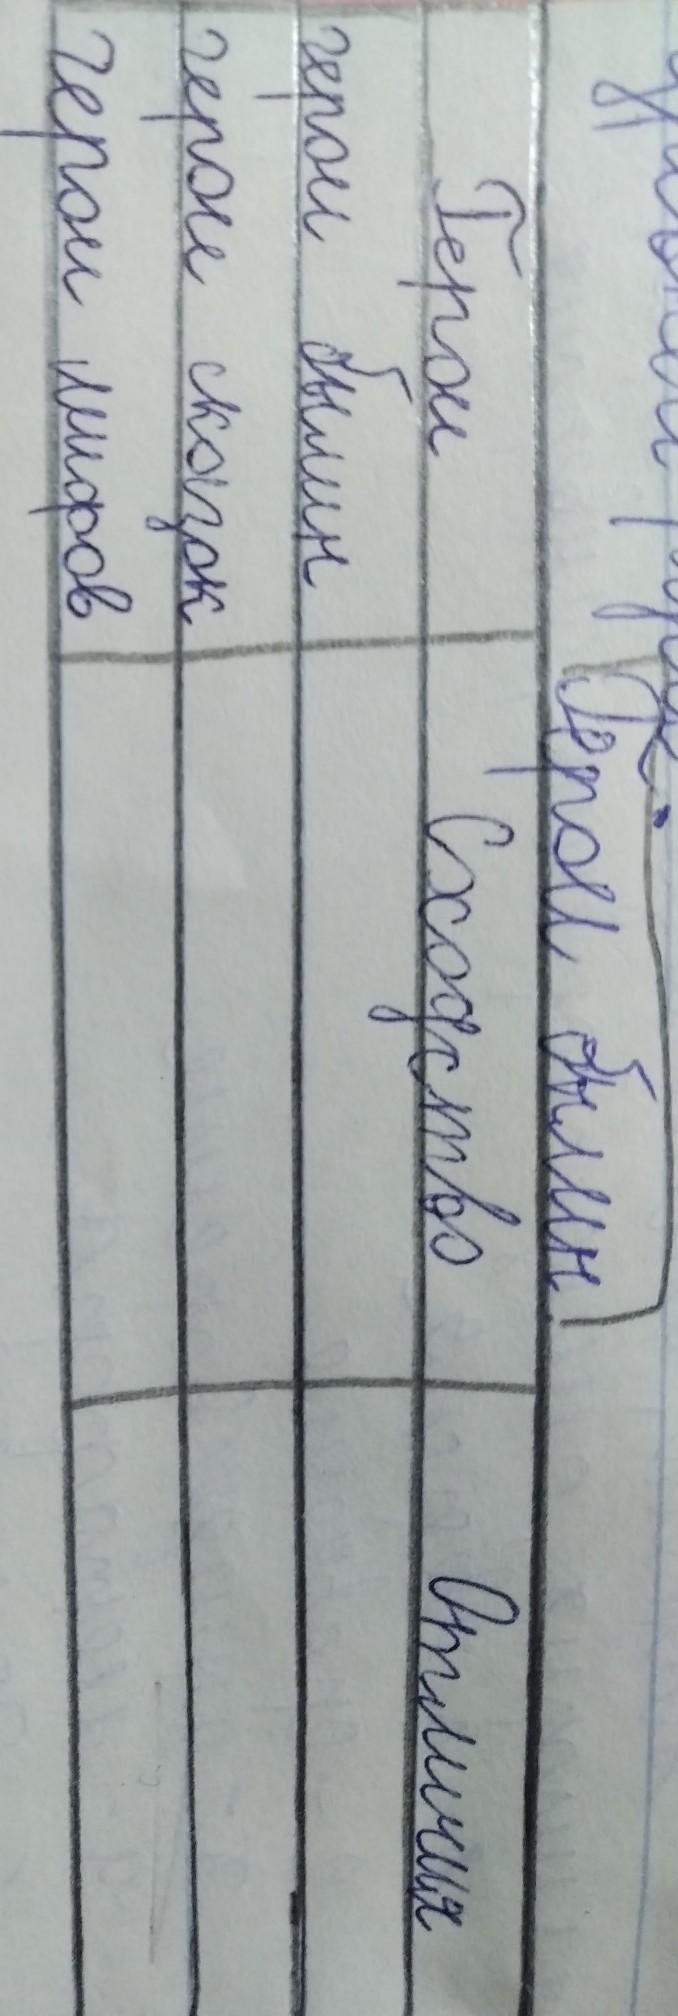 Герои былин
Герои Сходство Отличия
герои былин
герои сказок
герои мифов